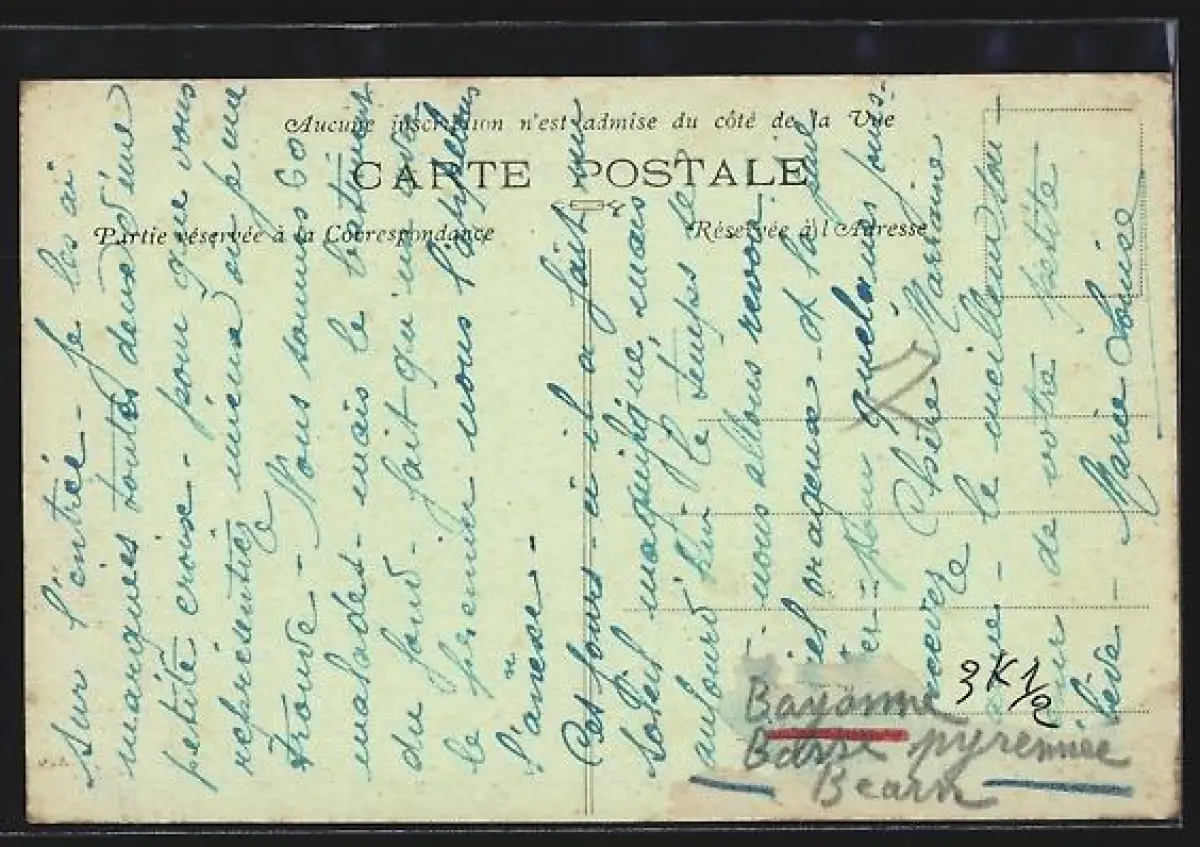 Aucune inscription n'est admise du côté de la Vue
CARTE POSTALE
Partie réservée à la Correspondance
Réservée à l'Adresse
sur l'entrée - Je las ai
marquées toutes deux d'une
petite croix - pour que vous
représentiez mieux où je me
trouve - Nous sommes 60
malades - mais le batiment
du fond - fait qu'un avec
le premier nous l'appelons
l'annexe -
Ces jours-ci il a fait un
soleil magnifique, mais
aujourd'hui le temps se
nous allons revoir
ciel orageux - et la pluie
Quelques jours
Chère Marraine
recevez le meilleur
de votre petite
Marie Louise
3K1/2
Bayonne
Basse pyrennée
Bearn